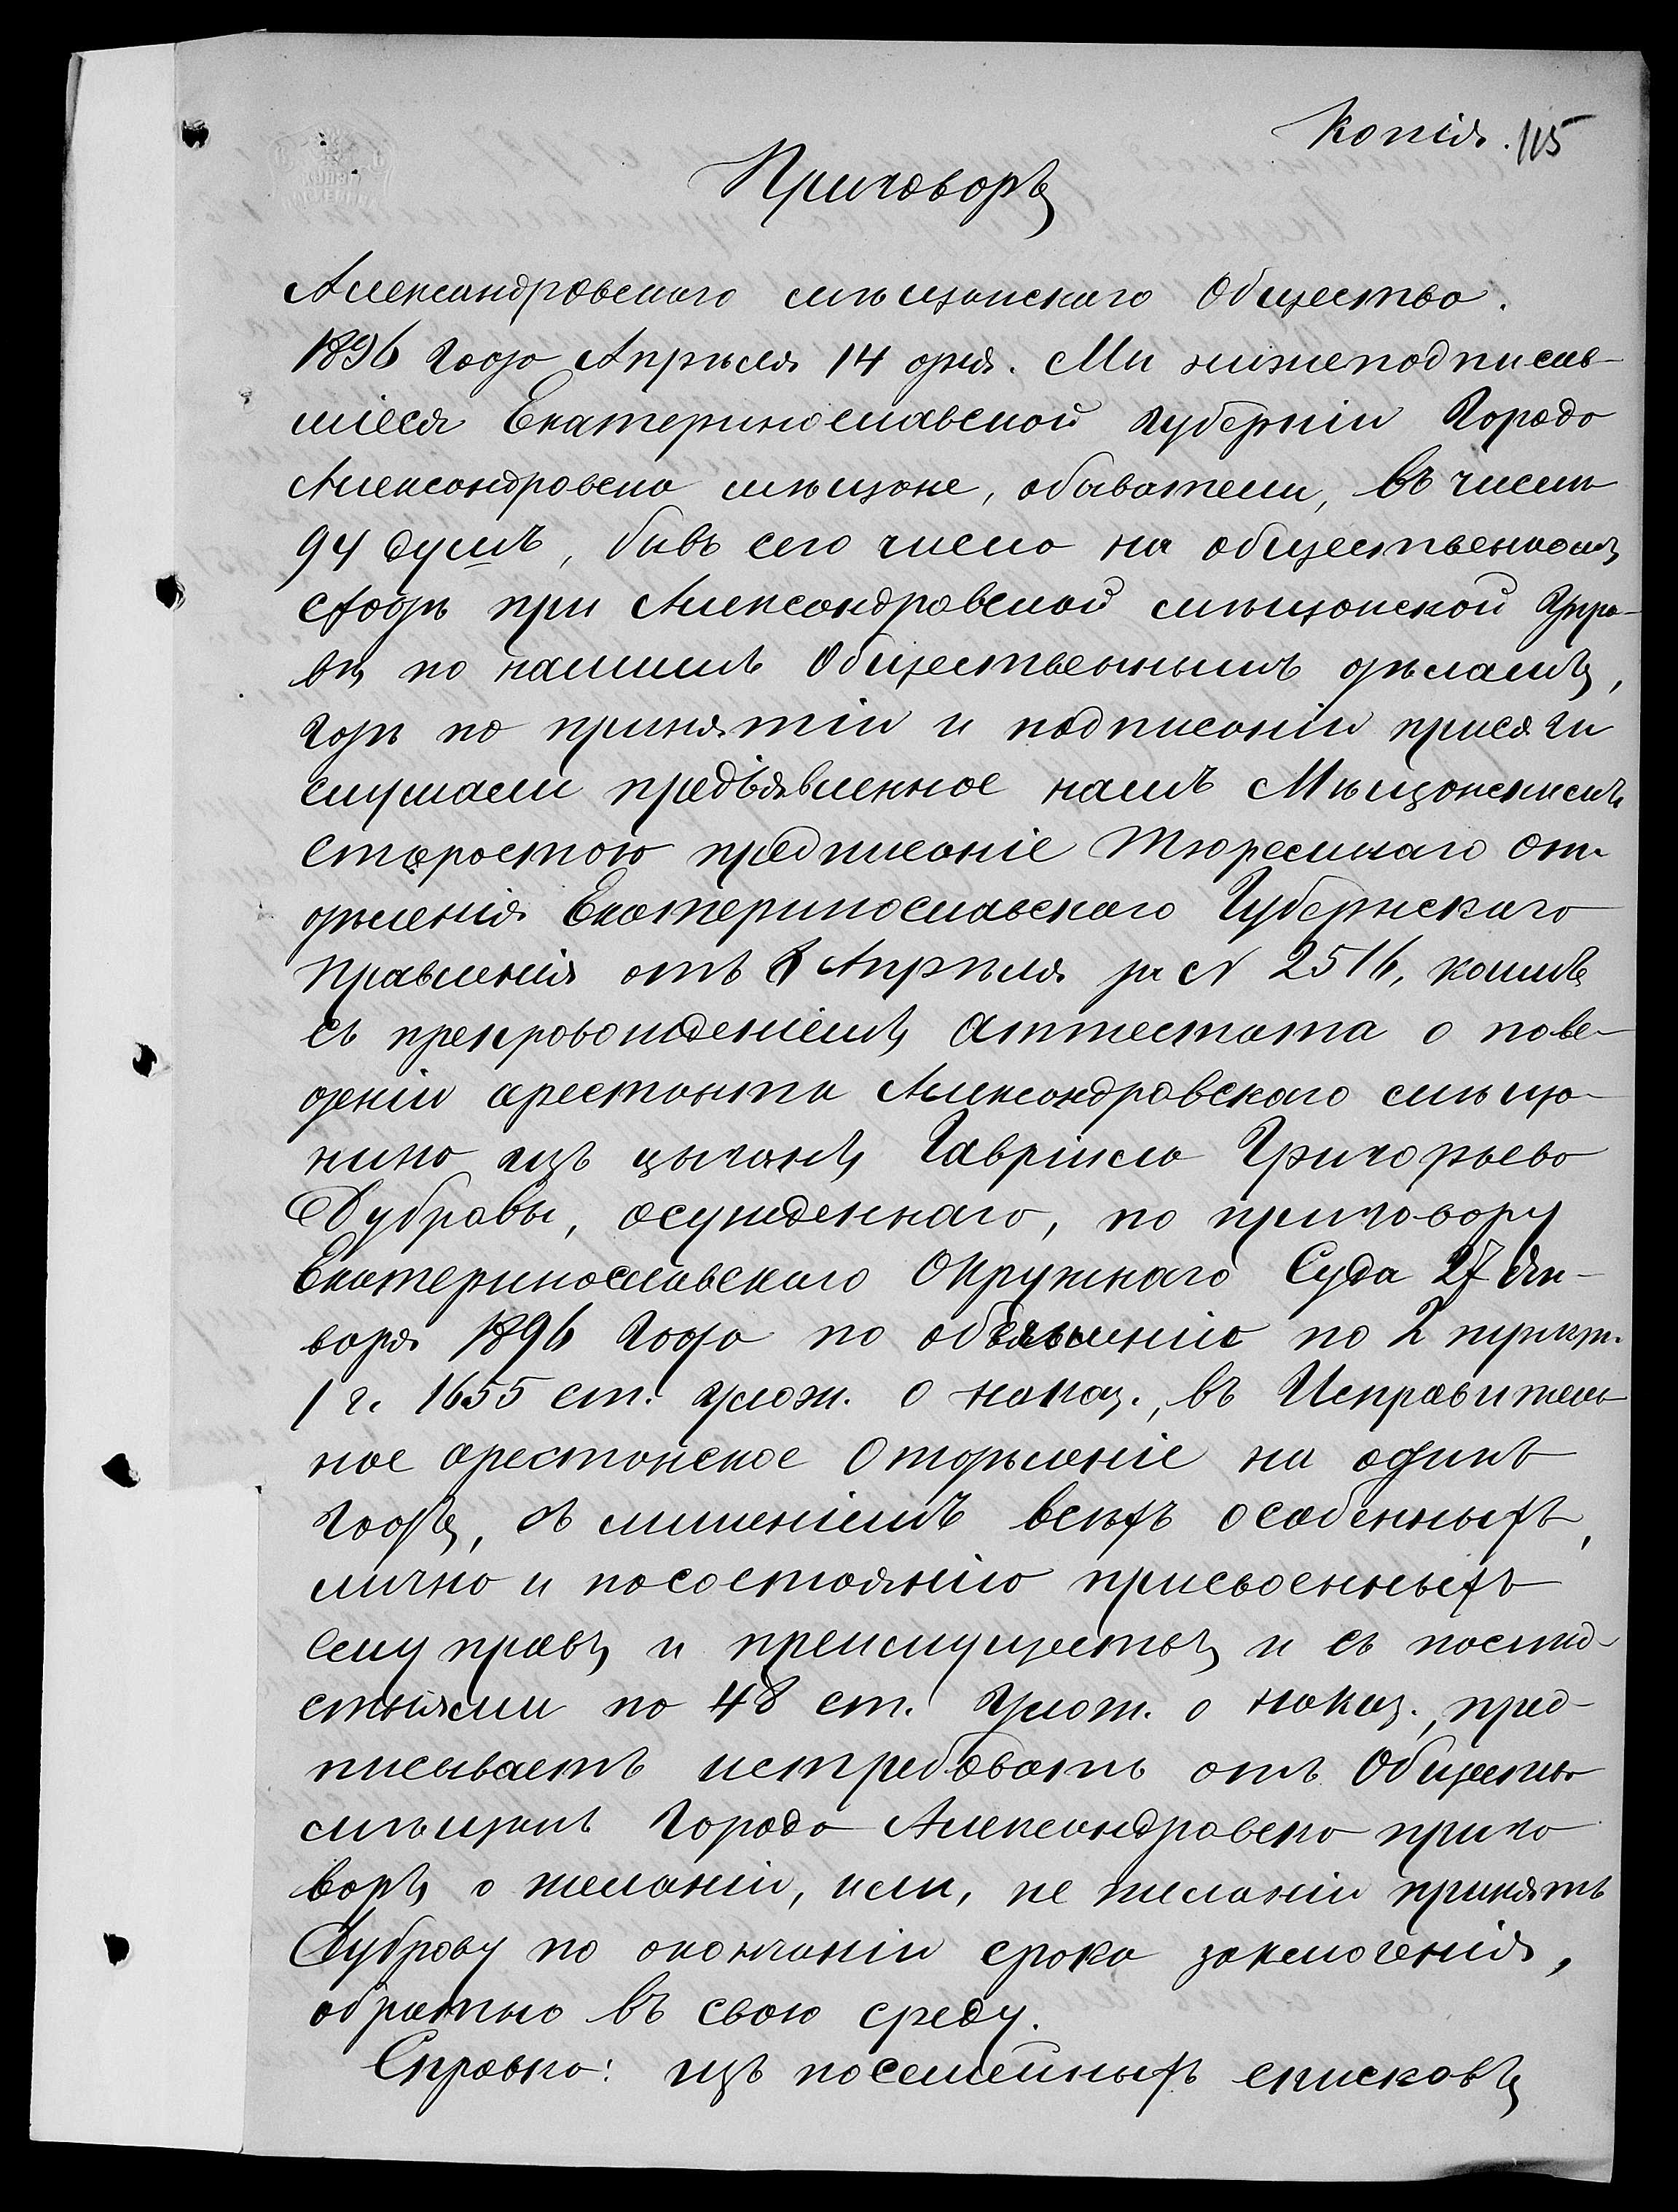 Копія. 115
Приговоръ
Александровскаго мѣщанскаго Общества.
1896 года Апрѣля 14 дня. Мы нижеподписав-
шіеся Екатеринославской губерніи Города
Александровска мѣщане, обыватели, въ числѣ
94 душъ, бывъ сего числа на общественномъ
сходѣ при Александровской мѣщанской Упра-
вѣ, по нашимъ Общественнымъ дѣламъ,
гдѣ по принятіи и подписаніи присяги
слушали предъявленное намъ Мѣщанскимъ
старостою предписаніе Тюремнаго От-
дѣленія Екатеринославскаго Губернскаго
Правленія отъ Апрѣля за № 2516, коимъ
съ препровожденіемъ аттестата о пове-
деніи арестанта Александровскаго мѣща-
нина изъ цыганъ, Гавріила Григорьева
Дубравы, осужденнаго, по приговору
Екатеринославскаго Окружнаго Суда 27 Ян-
варя 1896 года по обвиненію по 2 пункт.
1 ч. 1655 ст. улож. о наказ., въ Исправитель
ное арестанское Отдѣленіе на одинъ
годъ, съ лишеніемъ всѣхъ особенныхъ,
лично и посостоянію присвоенныхъ
ему правъ, и преимуществъ, и съ послѣд-
ствіями по 48 ст. Улож. о наказ., пред-
писываетъ истребовать отъ Общества
мѣщанъ Города Александровска приго
воръ, о желаніи, или, не желаніи принять
Дуброву по окончаніи срока заключенія,
обратно въ свою среду.
Справка: изъ посемейныхъ списковъ